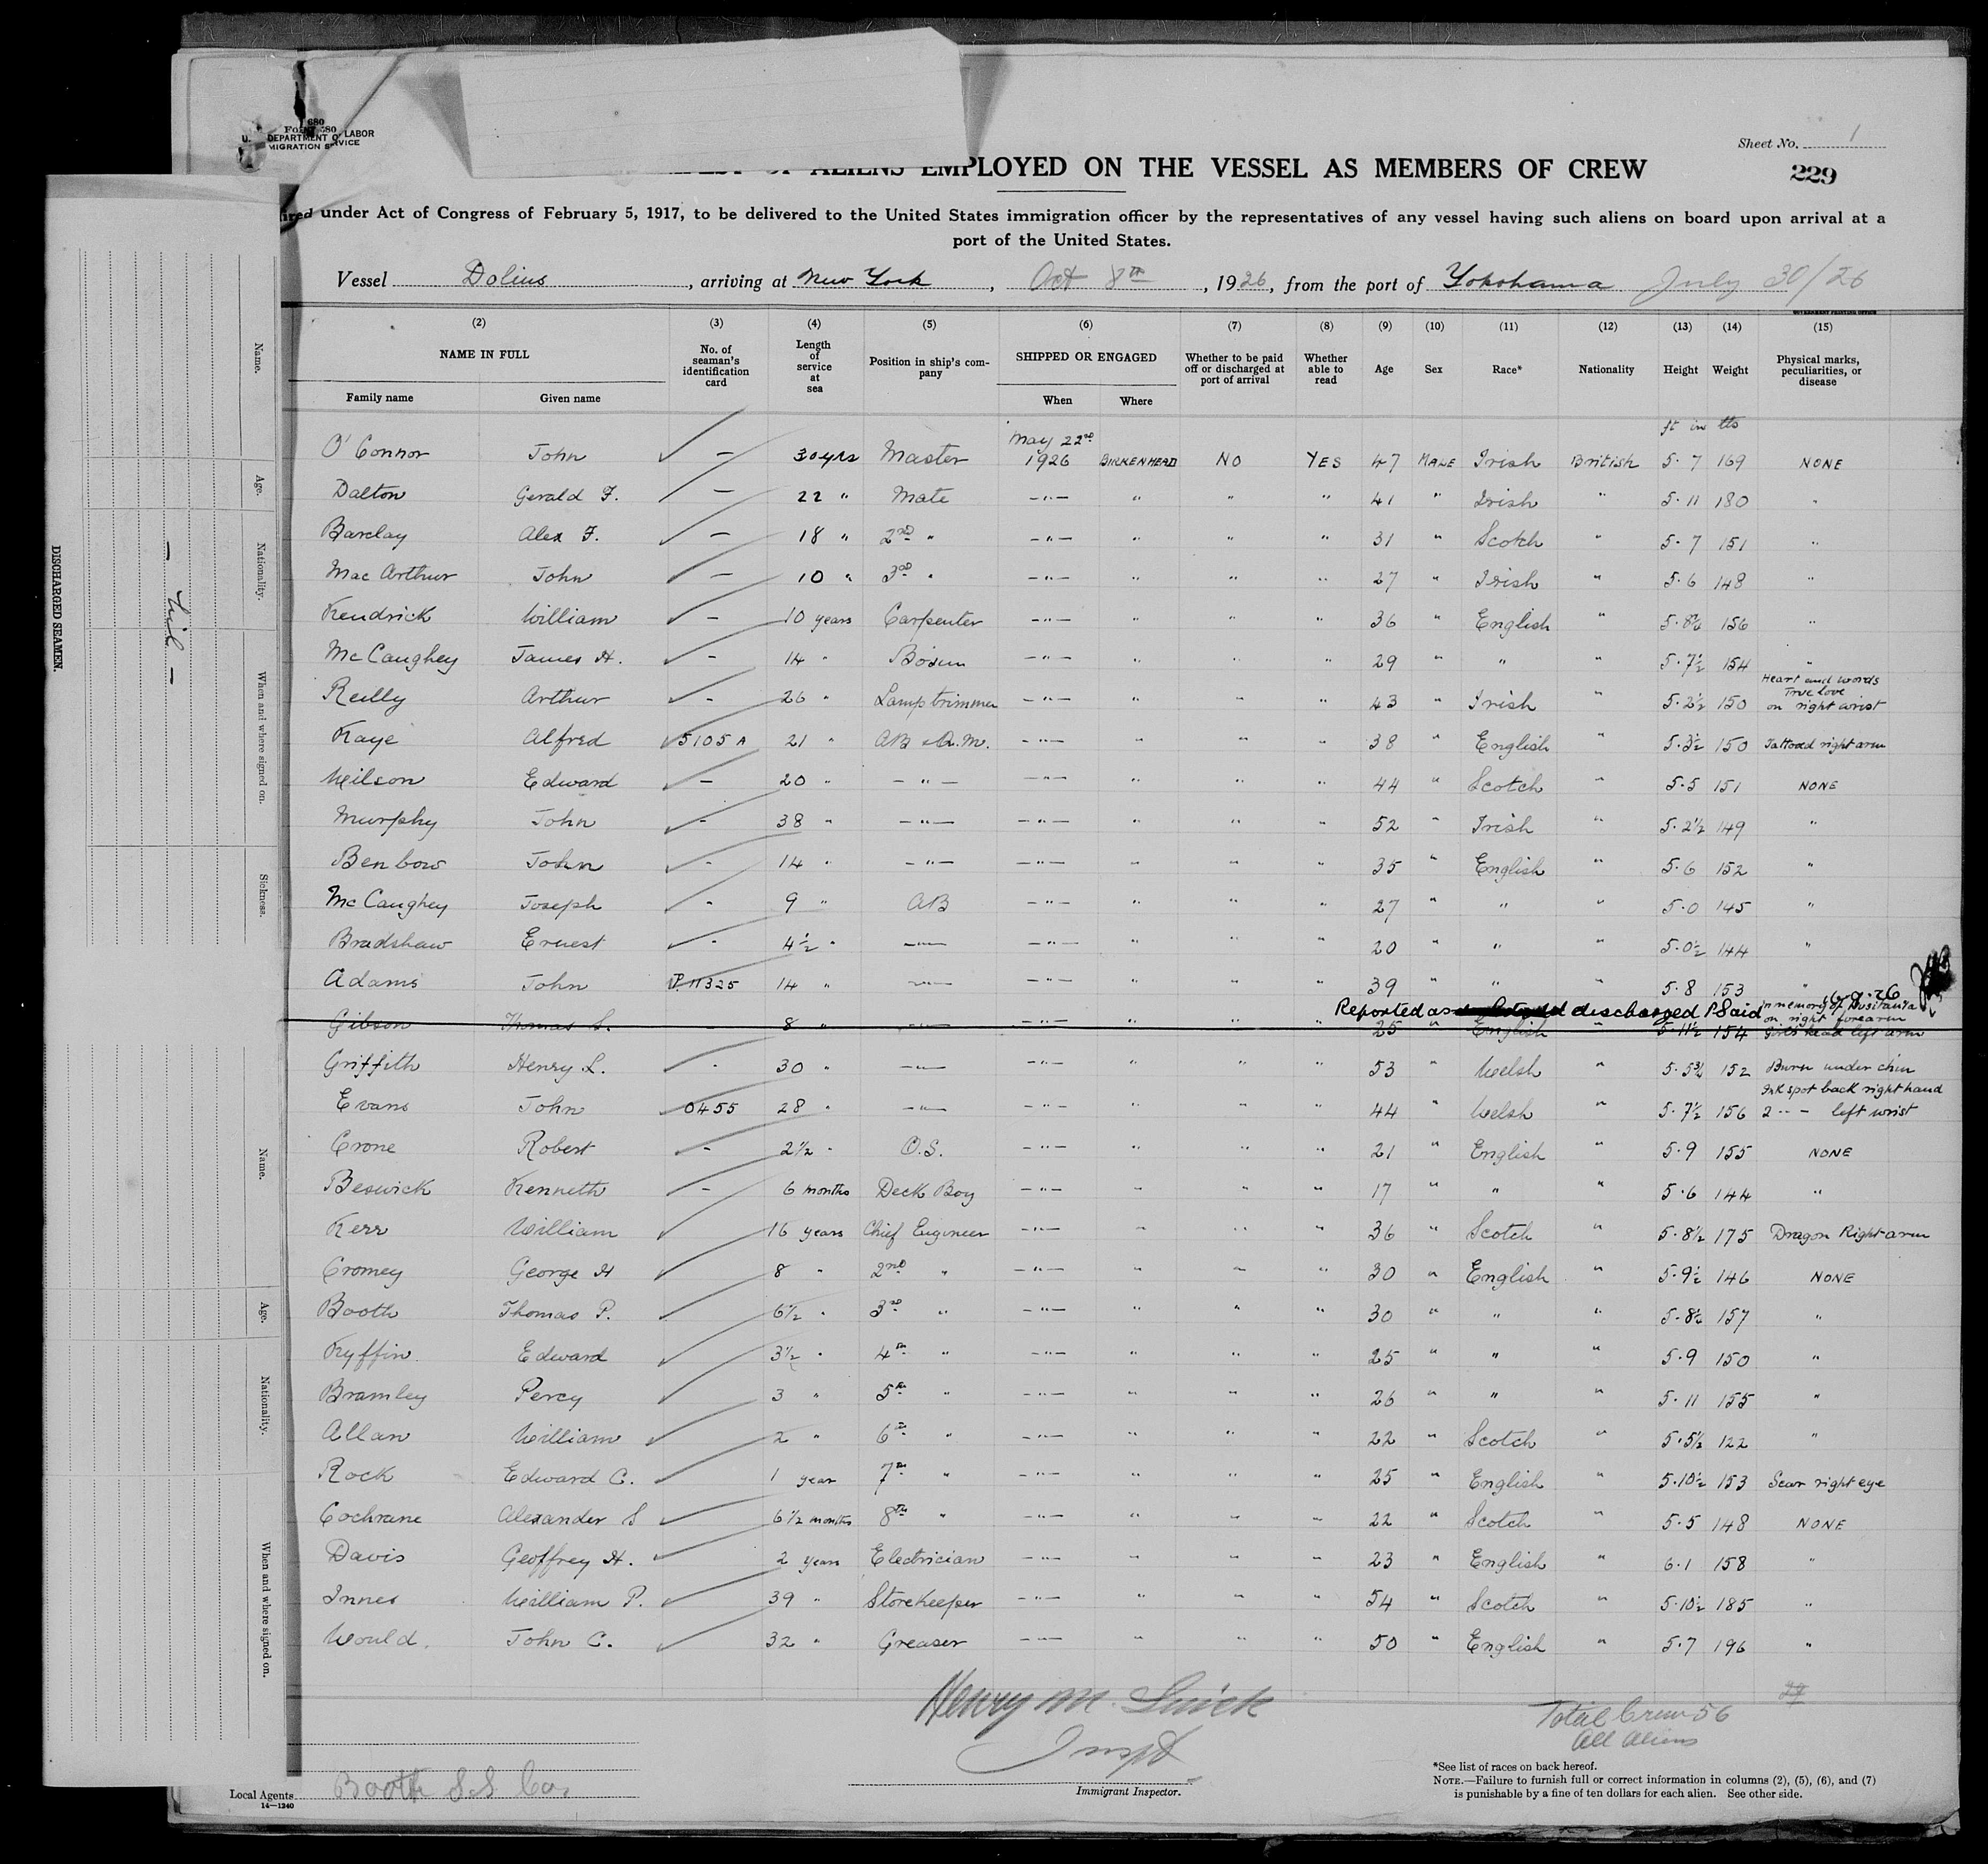 Form 680
DEPARTMENT OF LABOR
MIGRATION SERVICE
Sheet No. 1
229
OF ALIENS EMPLOYED ON THE VESSEL AS MEMBERS OF CREW
ired under Act of Congress of February 5, 1917, to be delivered to the United States immigration officer by the representatives of any vessel having such aliens on board upon arrival at a
port of the United States.
Vessel Dolius, arriving at New York, Oct 8th, 1926, from the port of Yokohama July 30/26
GOVERNMENT PRINTING OFFICE
(2) (3) (4) (5) (6) (7) (8) (9) (10) (11) (12) (13) (14) (15)
NAME IN FULL No. of seaman's identification card Length of service at sea Position in ship's company SHIPPED OR ENGAGED Whether to be paid off or discharged at port of arrival Whether able to read Age Sex Race* Nationality Height Weight Physical marks, peculiarities, or disease
Family name Given name When Where
ft in lbs
O'Connor John — 30 yrs Master May 22nd 1926 BIRKENHEAD NO YES 47 MALE Irish British 5.7 169 NONE
Dalton Gerald F. — 22 " Mate —"— " " " 41 " Irish " 5.11 180 "
Barclay Alex F. — 18 " 2nd " —"— " " " 31 " Scotch " 5.7 151 "
MacArthur John — 10 " 3rd " —"— " " " 27 " Irish " 5.6 148 "
Kendrick William - 10 years Carpenter —"— " " " 36 " English " 5.8½ 156 "
McCaughey James H. - 14 " Bosun —"— " " " 29 " " " 5.7½ 154 "
Reilly Arthur - 26 " Lamptrimmer —"— " " " 43 " Irish " 5.2½ 150 Heart and words True Love on right wrist
Kaye Alfred 5105 A 21 " AB & Q.M. —"— " " " 38 " English " 5.3½ 150 Tattooed right arm
Neilson Edward — 20 " —"— —"— " " " 44 " Scotch " 5.5 151 NONE
Murphy John - 38 " —"— —"— " " " 52 " Irish " 5.2½ 149 "
Benbow John - 14 " —"— —"— " " " 35 " English " 5.6 152 "
McCaughey Joseph - 9 " AB —"— " " " 27 " " " 5.0 145 "
Bradshaw Ernest - 4½ " —"— —"— " " " 20 " " " 5.0½ 144 "
Adams John P.11325 14 " —"— —"— " " " 39 " " " 5.8 153 "
Reported as discharged P Said 16.9.26
Gibson Thomas S. - 8 " —"— —"— " " " 25 " English " 5.11½ 154 In memory of Lusitania on right forearm Girls head left arm
Griffith Henry L. - 30 " —"— —"— " " " 53 " Welsh " 5.5¾ 152 Burn under chin
Evans John 0455 28 " —"— —"— " " " 44 " Welsh " 5.7½ 156 Ink spot back right hand 2 " - left wrist
Crone Robert - 2½ " O.S. —"— " " " 21 " English " 5.9 155 NONE
Beswick Kenneth - 6 months Deck Boy —"— " " " 17 " " " 5.6 144 "
Kerr William 16 years Chief Engineer —"— " " " 36 " Scotch " 5.8½ 175 Dragon Right arm
Cromey George H 8 " 2nd " —"— " " " 30 " English " 5.9½ 146 NONE
Booth Thomas P. 6½ " 3rd " —"— " " " 30 " " " 5.8½ 157 "
Kyffin Edward 3½ " 4th " —"— " " " 25 " " " 5.9 150 "
Bramley Percy 3 " 5th " —"— " " " 26 " " " 5.11 155 "
Allan William 2 " 6th " —"— " " " 22 " Scotch " 5.5½ 122 "
Rock Edward C. 1 year 7th " —"— " " " 25 " English " 5.10½ 153 Scar right eye
Cochrane Alexander S 6½ months 8th " —"— " " " 22 " Scotch " 5.5 148 NONE
Davis Geoffrey H. 2 years Electrician —"— " " " 23 " English " 6.1 158 "
Innes William P. 39 " Storekeeper —"— " " " 54 " Scotch " 5.10½ 185 "
Would John C. 32 " Greaser —"— " " " 50 " English " 5.7 196 "
Henry M.
Inspt
Immigrant Inspector.
Total Crew 56
All Aliens
*See list of races on back hereof.
NOTE.—Failure to furnish full or correct information in columns (2), (5), (6), and (7)
is punishable by a fine of ten dollars for each alien. See other side.
Local Agents Booth S.S. Co.
14—1240
DISCHARGED SEAMEN.
- Nil -
Name.
Age.
Nationality.
When and where signed on.
Sickness.
Name.
Age.
Nationality.
When and where signed on.